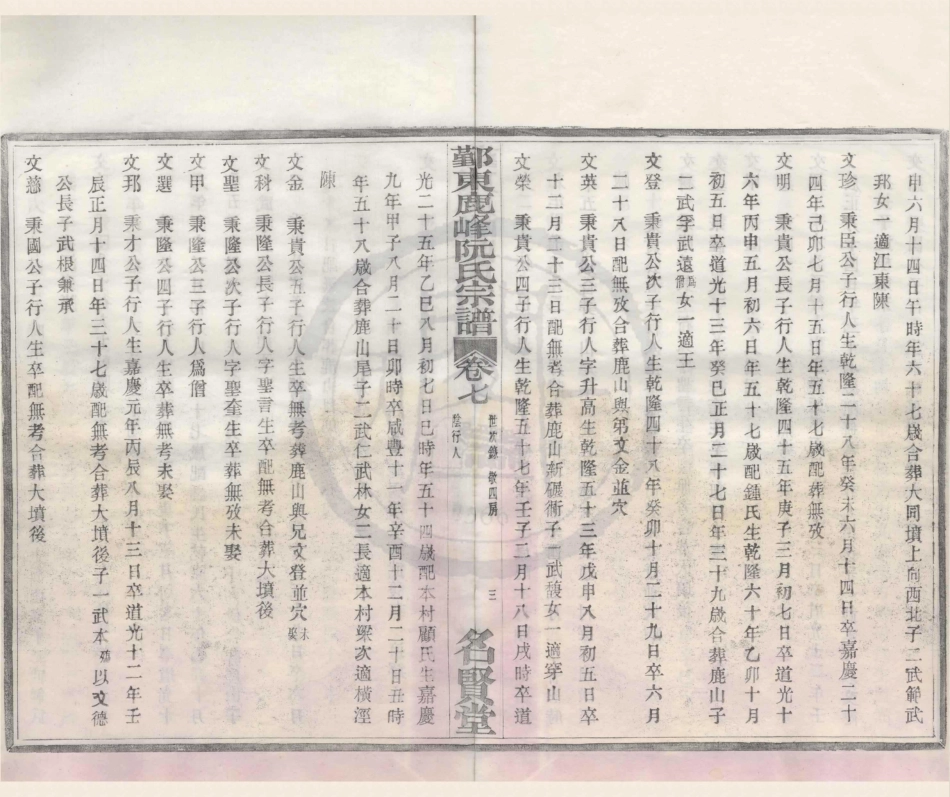 申六月十四日午時年六十七歲合葬大同墳上向西北子二武範武
邦女一適江東陳
文珍　秉臣公子行人生乾隆二十八年癸未六月十四日卒嘉慶二十
四年己卯七月十五日年五十七歲配葬無攷
文明　秉貴公長子行人生乾隆四十五年庚子三月初七日卒道光十
六年丙申五月初六日年五十七歲配鍾氏生乾隆六十年乙卯十月
初五日卒道光十三年癸巳正月二十七日年三十九歲合葬鹿山子
二武孚武遠爲僧女一適王
文登　秉貴公次子行人生乾隆四十八年癸卯十月二十九日卒六月
二十八日配無攷合葬鹿山與弟文金並穴
文英　秉貴公三子行人字升高生乾隆五十三年戊申八月初五日卒
十二月二十三日配無考合葬鹿山新碾衕子一武馥女一適穿山
文榮　秉貴公四子行人生乾隆五十七年壬子二月十八日戌時卒道
鄞東鹿峰阮氏宗譜　卷七　世次錄　敏四房　陰行人　三　名賢堂
光二十五年乙巳八月初七日巳時年五十四歲配本村顧氏生嘉慶
九年甲子八月二十日卯時卒咸豐十一年辛酉十二月二十日丑時
年五十八歲合葬鹿山尾子二武仁武林女二長適本村梁次適橫涇
陳
文金　秉貴公五子行人生卒無考葬鹿山與兄文登並穴未娶
文科　秉隆公長子行人字聖言生卒配無考合葬大墳後
文聖　秉隆公次子行人字聖奎生卒葬無攷未娶
文甲　秉隆公三子行人爲僧
文選　秉隆公四子行人生卒葬無考未娶
文邦　秉才公子行人生嘉慶元年丙辰八月十三日卒道光十二年壬
辰正月十四日年三十七歲配無考合葬大墳後子一武本殤以文德
公長子武根兼承
文慈　秉國公子行人生卒配無考合葬大墳後